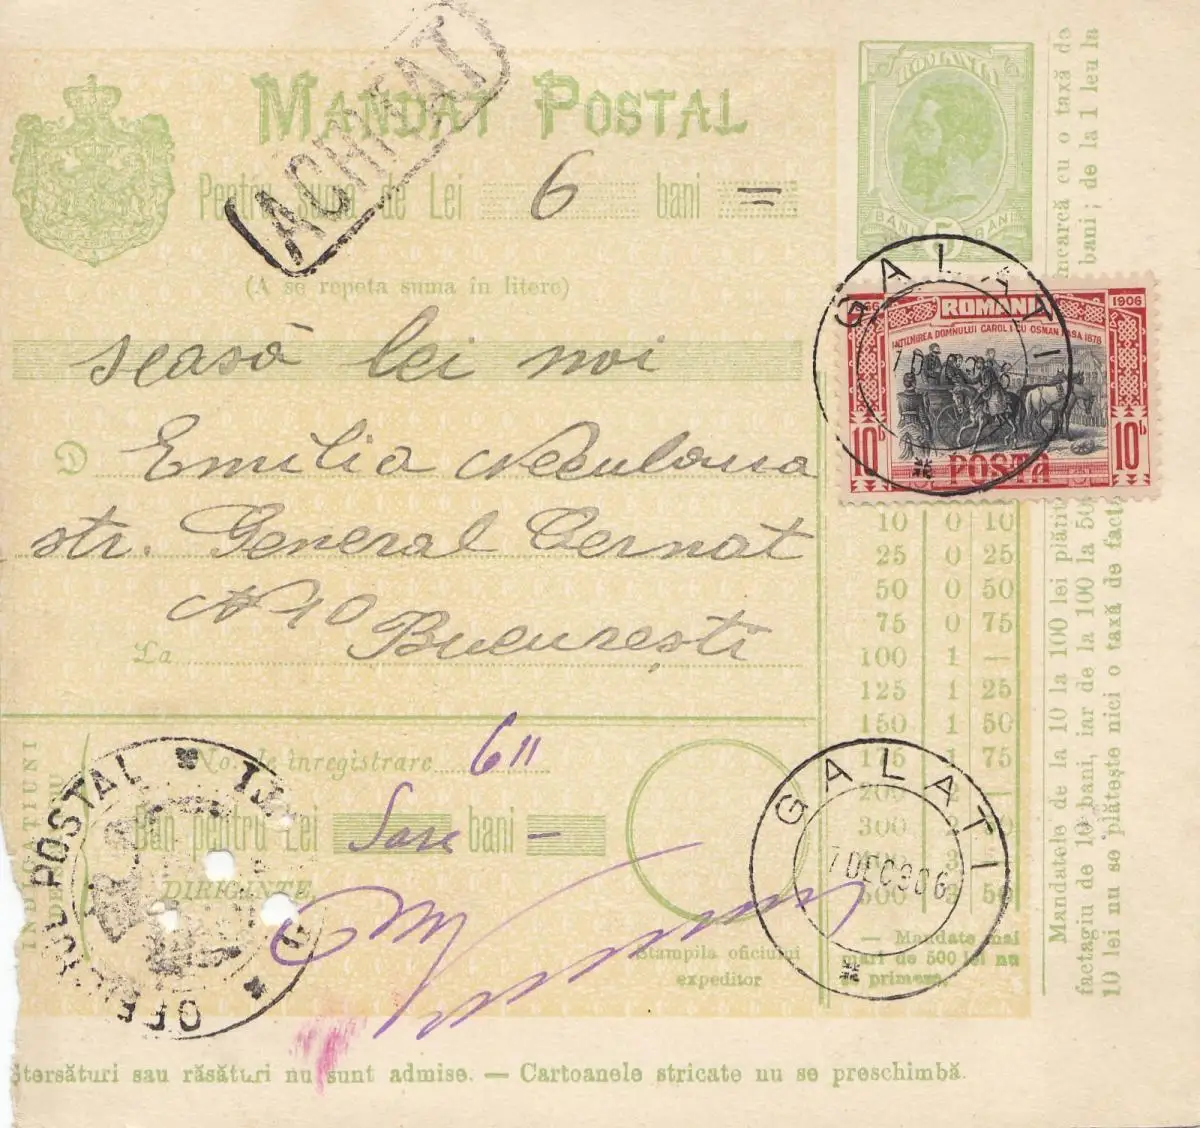 MANDAT POSTAL
ACHITAT
Pentru suma de Lei 6 bani =
(A se repeta suma in litere)
seasă lei noi
D Emilia
str. General Cernat
N 10
La București
No. de inregistrare 611
Bun pentru Lei Sase bani —
DIRIGINTE,
Stampila oficiului
expeditor
OFF POSTAL
INDICAȚIUNI
ROMANIA
BANI 5 BANI
GALATI
7 DEC 906
1906
ROMANIA
INTILNIREA DOMNULUI CAROL I CU OSMAN PASA 1878
10b POSTA 10b
10 0 10
25 0 25
50 0 50
75 0 75
100 1 —
125 1 25
150 1 50
175 1 75
300
500 3 50
GALATI
7 DEC 906
— Mandate mai
mari de 500 lei nu
se primesc.
Mandatele de la 10 la 100 lei
factagiu de 10 bani, iar de la 100 la
10 lei nu se plătește nici o taxă de
încarcă cu o taxă de
bani; de la 1 leu la
Ștersături sau răsături nu sunt admise. — Cartoanele stricate nu se preschimbă.